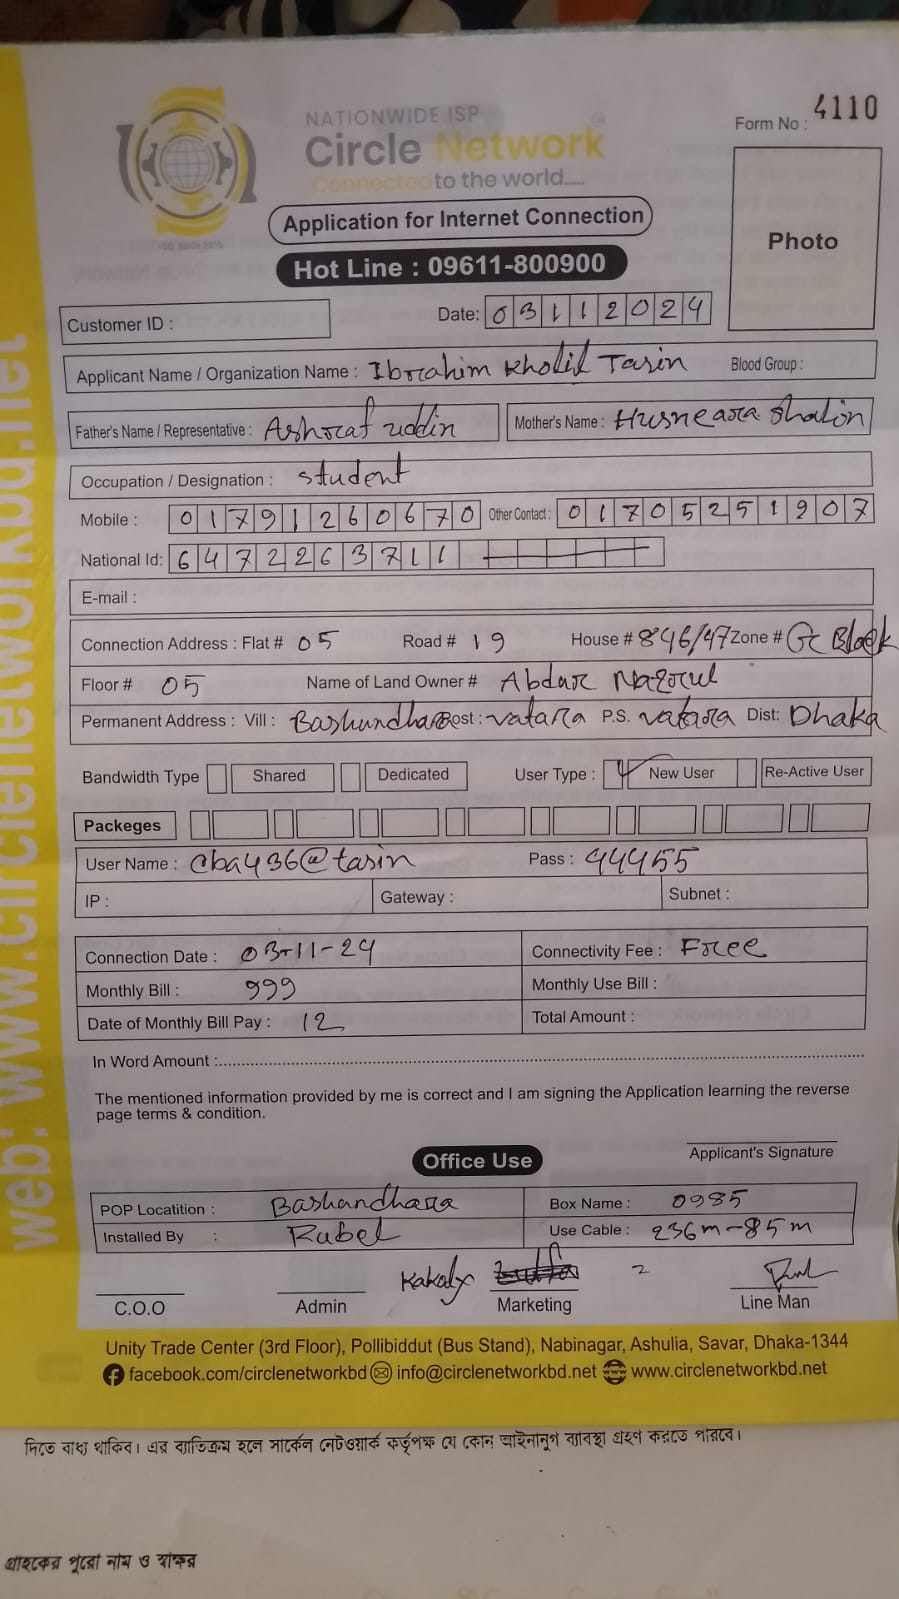 4110
Form No :
NATIONWIDE ISP
Circle Network
Connected to the world.....
Application for Internet Connection
Hot Line : 09611-800900
Photo
Customer ID :
Date: 03112024
Applicant Name / Organization Name : Ibrahim Kholil Tasin Blood Group :
Father's Name / Representative : Ashraf uddin Mother's Name : Husneara Shalin
Occupation / Designation : student
Mobile : 01791260670 Other Contact : 01705251907
National Id: 6472263711
E-mail :
Connection Address : Flat # 05 Road # 19 House # 846/47 Zone # G Block
Floor # 05 Name of Land Owner # Abdur Nazrul
Permanent Address : Vill : Bashundhara Post : vatara P.S. vatara Dist: Dhaka
Bandwidth Type Shared Dedicated User Type : New User Re-Active User
Packeges
User Name : cba436@tasin Pass : 44455
IP : Gateway : Subnet :
Connection Date : 03-11-24 Connectivity Fee : Free
Monthly Bill : 999 Monthly Use Bill :
Date of Monthly Bill Pay : 12 Total Amount :
In Word Amount :
The mentioned information provided by me is correct and I am signing the Application learning the reverse
page terms & condition.
Applicant's Signature
Office Use
POP Locatition : Bashandhara Box Name : 0985
Installed By : Rubel Use Cable : 236m-85m
Kakoly
C.O.O Admin Marketing Line Man
Unity Trade Center (3rd Floor), Pollibiddut (Bus Stand), Nabinagar, Ashulia, Savar, Dhaka-1344
facebook.com/circlenetworkbd info@circlenetworkbd.net www.circlenetworkbd.net
web: www.circlenetworkbd.net
দিতে বাধ্য থাকিব। এর ব্যতিক্রম হলে সার্কেল নেটওয়ার্ক কর্তৃপক্ষ যে কোন আইনানুগ ব্যাবস্থা গ্রহণ করতে পারবে।
গ্রাহকের পুরো নাম ও স্বাক্ষর